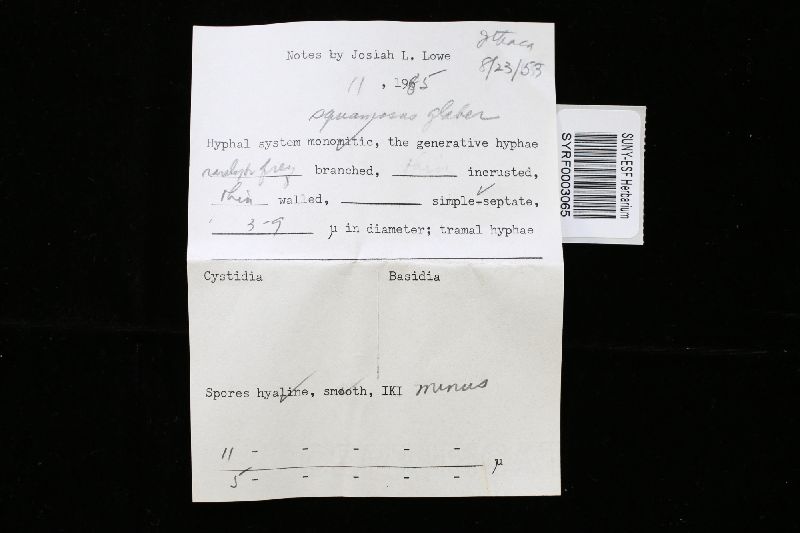 Ithaca
8/23/55
Notes by Josiah L. Lowe
11 , 1965
squamosus glaber
Hyphal system monomitic, the generative hyphae
freq branched, incrusted,
thin walled, simple-septate,
3-9 µ in diameter; tramal hyphae
Cystidia Basidia
Spores hyaline, smooth, IKI minus
11 - - - - -
5 - - - - - µ
SUNY-ESF Herbarium
SYRF0003065